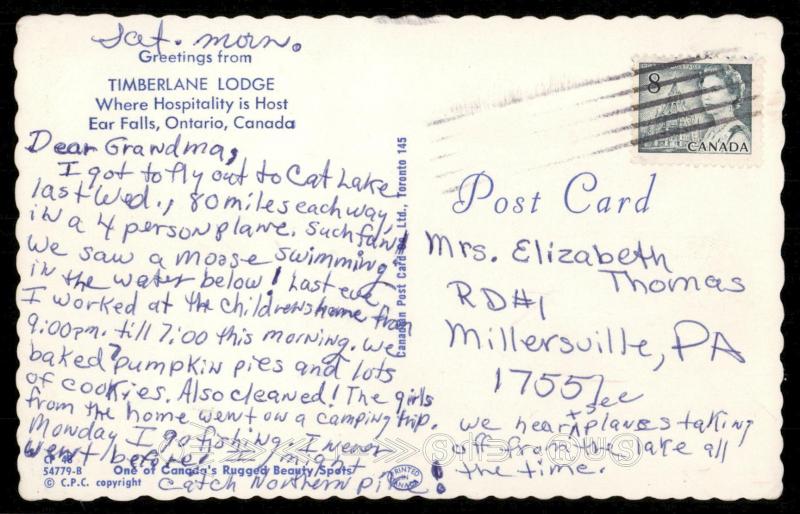 Sat. morn.
Greetings from
TIMBERLANE LODGE
Where Hospitality is Host
Ear Falls, Ontario, Canada
Dear Grandma,
I got to fly out to Cat Lake
last Wed., 80 miles each way,
in a 4 person plane. Such fun!
We saw a moose swimming
in the water below! Last eve.
I worked at the childrens home from
9:00pm. till 7:00 this morning. We
baked 7 pumpkin pies and lots
of cookies. Also cleaned! The girls
from the home went on a camping trip.
Monday I go fishing. I never
went before! I might
catch Northern Pike!
CP 48
54779-B
One of Canada's Rugged Beauty Spots
© C.P.C. copyright
PRINTED IN CANADA
Canadian Post Card Co., Ltd., Toronto 145
8
CANADA
Post Card
Mrs. Elizabeth
Thomas
RD#1
Millersville, PA
17551
see
we hear + planes taking
off from the lake all
the time.